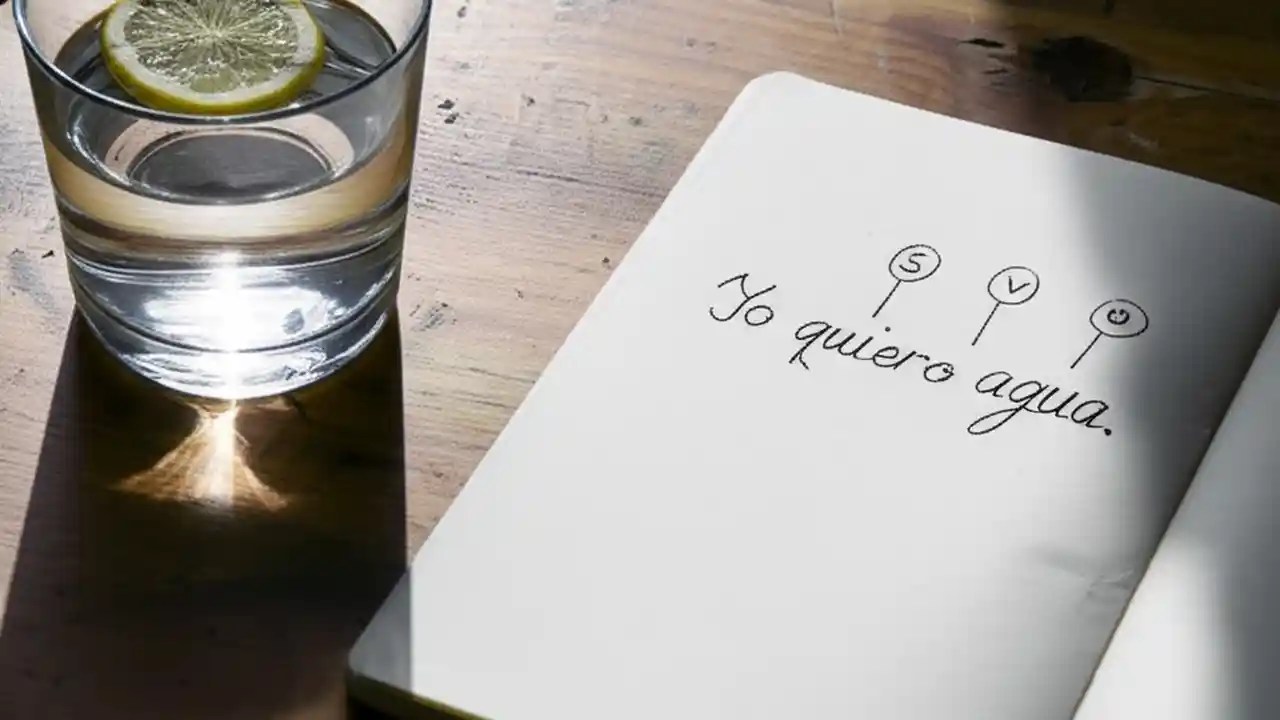 S V O
Yo quiero agua.